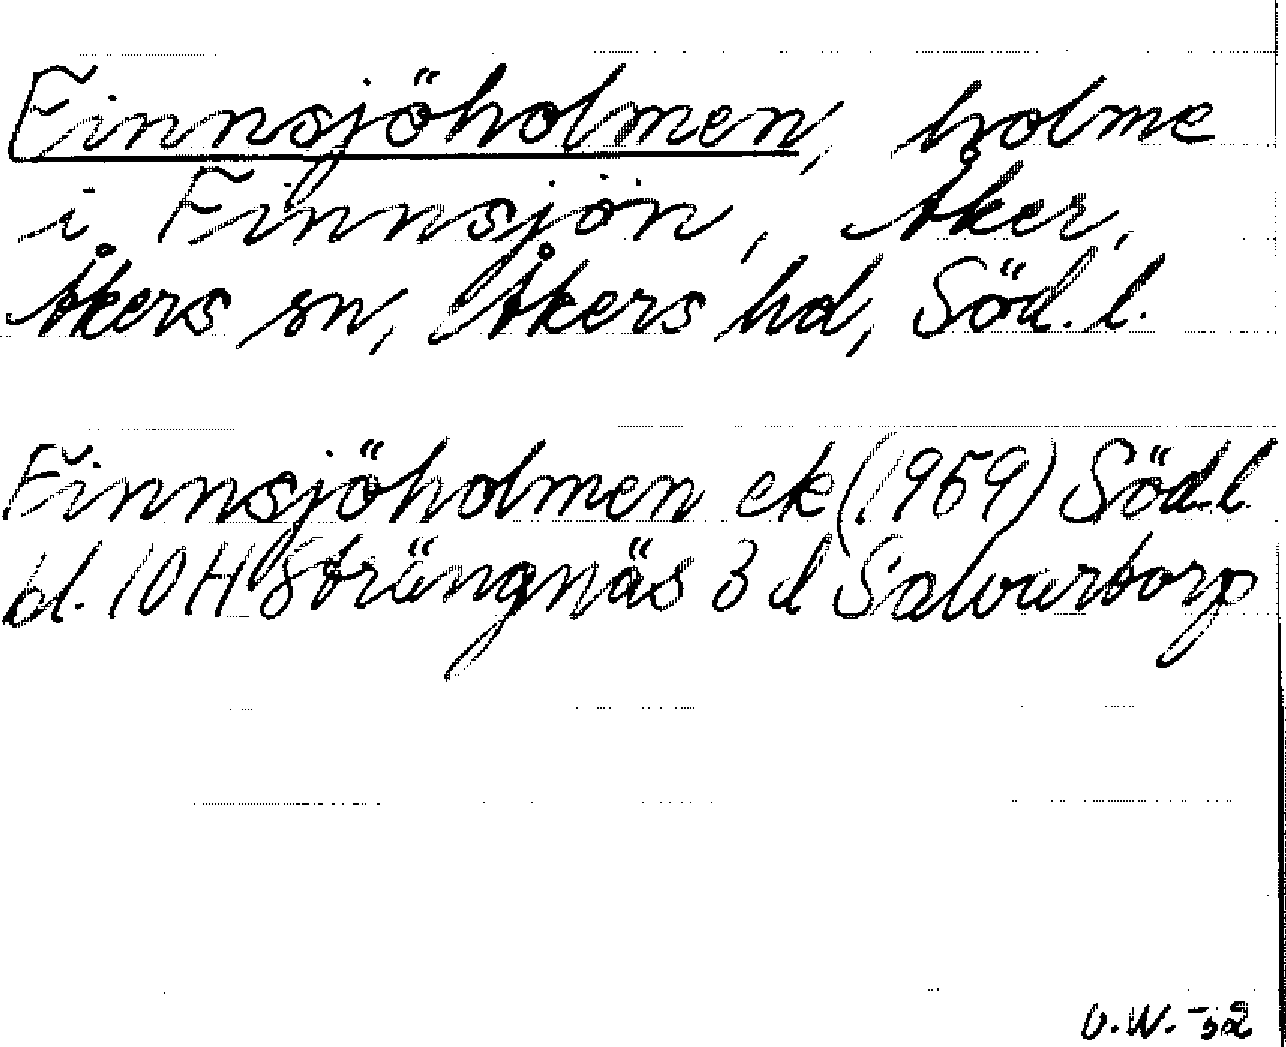 Finnsjöholmen, holme
i Finnsjön, Åker,
Åkers sn, Åkers hd, Söd. l.
Finnsjöholmen ek (1959) Söd. l
bl. 10 H Strängnäs 3 d Salvartorp